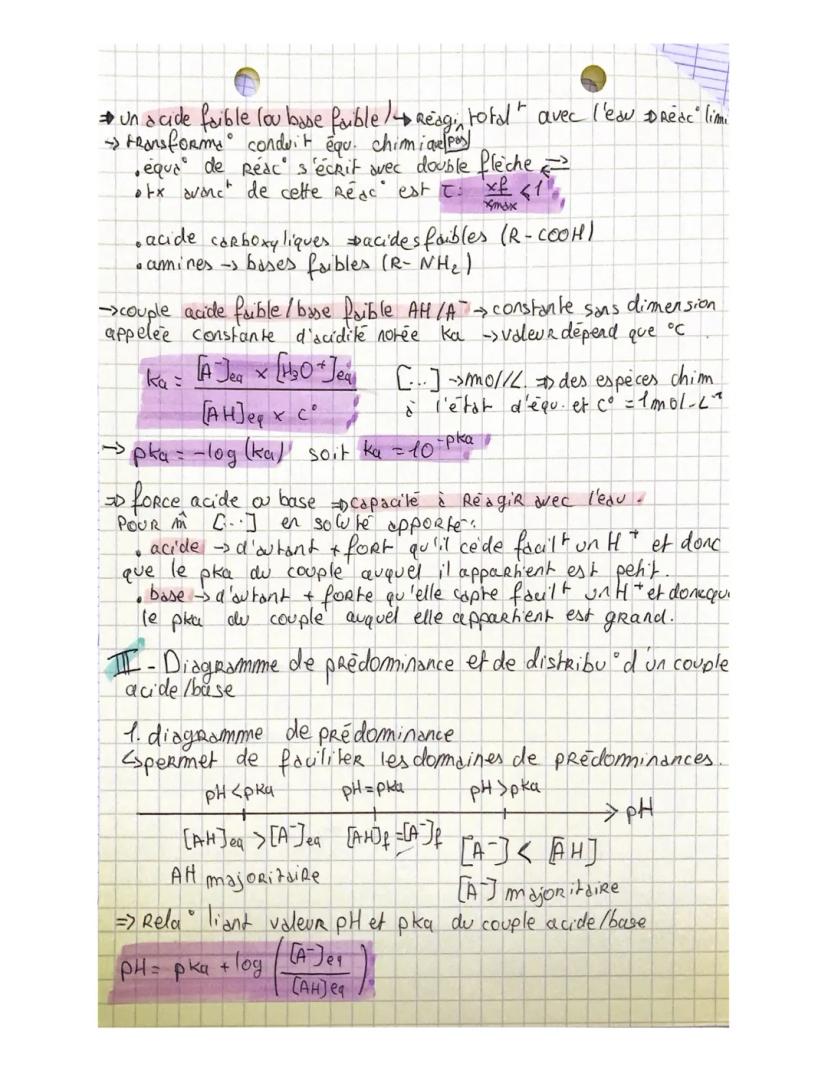 → un acide faible (ou base faible) ↳ Réagit totalt avec l'eau ⇒ Réac° limi
→ transforma° conduit équ. chimique [pas]
. équa° de Réac° s'écrit avec double flèche ⇌
. tx avanct de cette Réac° est τ = xf/xmax < 1
. acide carboxyliques ⇒ acides faibles (R-COOH)
. amines → bases faibles (R-NH₂)
→ couple acide faible/base faible AH/A⁻ → constante sans dimension
appelée constante d'acidité notée Ka → valeur dépend que °C
Ka = [A⁻]eq × [H₃O⁺]eq / [AH]eq × C°
[...] → mol/L ⇒ des espèces chim
à l'état d'équ. et C° = 1mol.L⁻¹
→ pKa = -log(Ka) soit Ka = 10^-pKa
⇒ force acide ou base ⇒ capacité à Réagir avec l'eau.
Pour m̂ [...] en soluté apporté :
. acide → d'autant + fort qu'il cède facilt un H⁺ et donc
que le pKa du couple auquel il appartient est petit.
. base → d'autant + forte qu'elle capte facilt un H⁺ et doncqu
le pKa du couple auquel elle appartient est grand.
III - Diagramme de prédominance et de distribu° d'un couple
acide/base
1. diagramme de prédominance
↳ permet de faciliter les domaines de prédominances.
pH < pKa pH = pKa pH > pKa
→ pH
[AH]eq > [A⁻]eq [AH]f = [A⁻]f [A⁻] < [AH]
AH majoritaire [A⁻] majoritaire
⇒ Rela° liant valeur pH et pKa du couple acide/base
pH = pKa + log ([A⁻]eq / [AH]eq)